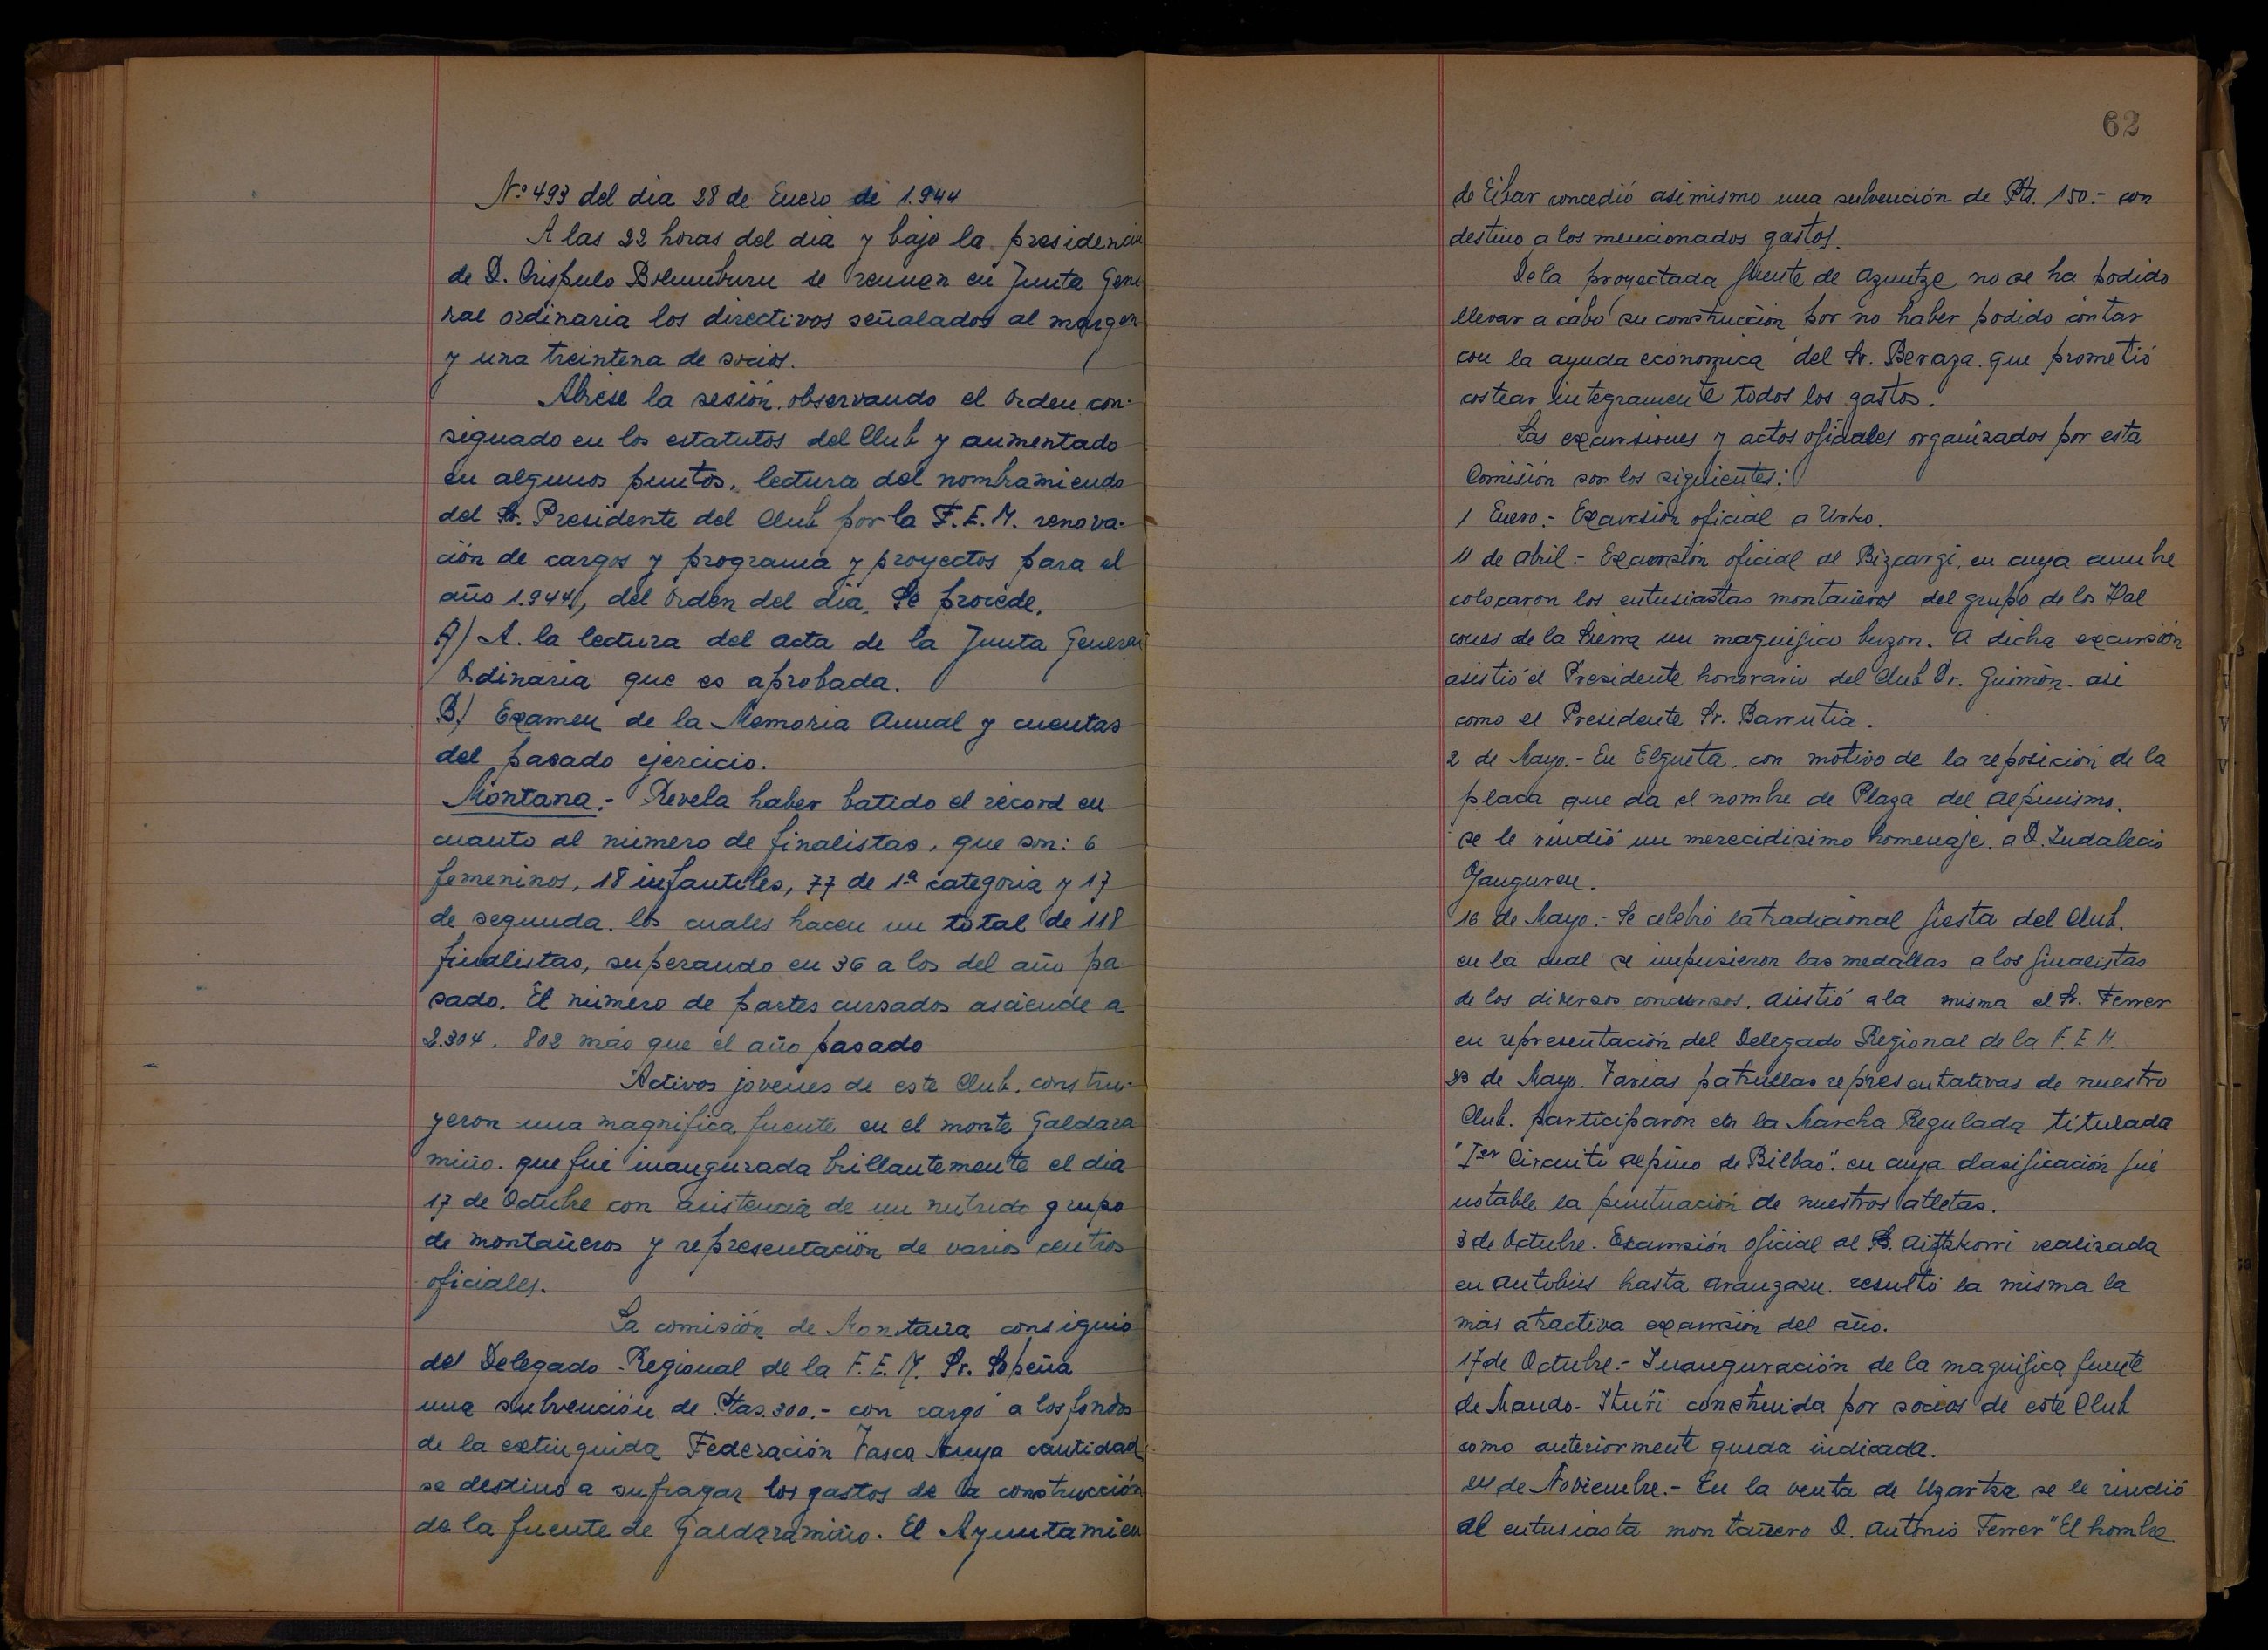 Nº 493 del dia 28 de Enero de 1.944
A las 22 horas del dia y bajo la presidencia
de D. Crispulo Bolumburu se reunen en Junta Gene
ral ordinaria los directivos señalados al margen
y una treintena de socios.
Abrese la sesión, observando el orden con-
signado en los estatutos del Club y aumentado
en algunos puntos, lectura del nombramiendo
del Sr. Presidente del Club por la F.E.M. renova-
ción de cargos y programa y proyectos para el
año 1.944, del orden del dia. Se procede.
A) A. la lectura del acta de la Junta General
Ordinaria que es aprobada.
B) Examen de la Memoria Anual y cuentas
del pasado ejercicio.
Montana.- Revela haber batido el record en
cuanto al número de finalistas, que son: 6
femeninos, 18 infantiles, 77 de 1ª categoria y 17
de segunda. los cuales hacen un total de 118
finalistas, superando en 36 a los del año pa
sado. El número de partes cursados asciende a
2.304. 802 más que el año pasado
Activos jovenes de este Club. constru-
yeron una magnifica fuente en el monte Galdara
miño. que fué inaugurada brillantemente el dia
17 de Octubre con asistencia de un nutrido grupo
de montañeros y representación de varios centros
oficiales.
La comisión de Montaña consiguió
del Delegado Regional de la F.E.M. Sr. Sopeña
una subvención de Ptas. 300.- con cargo a los fondos
de la extinguida Federación Vasca cuya cantidad
se destinó a sufragar los gastos de la construcción
de la fuente de Galdaramiño. El Ayuntamien
62
de Eibar concedió asimismo una subvención de Pts. 150.- con
destino a los mencionados gastos.
De la proyectada fuente de Azuntze no se ha podido
llevar a cabo su construcción por no haber podido contar
con la ayuda económica del Sr. Beraza. que prometió
costear integramente todos los gastos.
Las excursiones y actos oficiales organizados por esta
Comisión son los siguientes:
1 Enero.- Excursión oficial a Urko.
11 de Abril.- Excursión oficial al Bizcargi, en cuya cumbre
colocaron los entusiastas montañeros del grupo de los Hal
cones de la Sierra un magnifico buzon. A dicha excursión
asistió el Presidente honorario del Club Dr. Guimón. asi
como el Presidente Sr. Barrutia.
2 de Mayo.- En Elgueta, con motivo de la reposición de la
placa que da el nombre de Plaza del Alpinismo.
se le rindió un merecidisimo homenaje. a D. Indalecio
Ojanguren.
16 de Mayo.- Se celebró la tradicional fiesta del Club.
en la cual se impusieron las medallas a los finalistas
de los diversos concursos. asistió a la misma el Sr. Ferrer
en representación del Delegado Regional de la F.E.M.
23 de Mayo. Varias patrullas representativas de nuestro
Club. participaron en la Marcha Regulada titulada
"Ier Circuito Alpino de Bilbao". en cuya clasificación fué
notable la puntuación de nuestros atletas.
3 de Octubre. Excursión oficial al Aitzkorri realizada
en autobús hasta Aranzazu. resultó la misma la
más atractiva excursión del año.
17 de Octubre.- Inauguración de la magnifica fuente
de Mando- Ituri construida por socios de este Club
como anteriormente queda indicada.
24 de Noviembre.- En la venta de Uzartza se le rindió
al entusiasta montañero D. Antonio Ferrer "El hombre